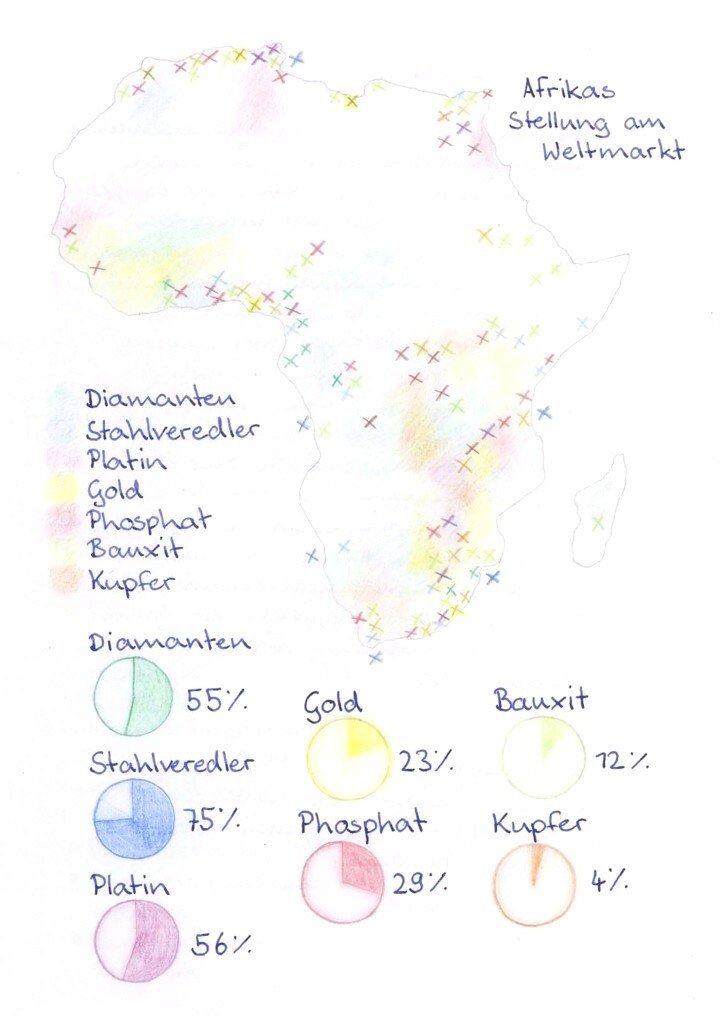 Afrikas
Stellung am
Weltmarkt
Diamanten
Stahlveredler
Platin
Gold
Phosphat
Bauxit
Kupfer
Diamanten
55%
Stahlveredler
75%
Platin
56%
Gold
23%
Phosphat
29%
Bauxit
12%
Kupfer
4%